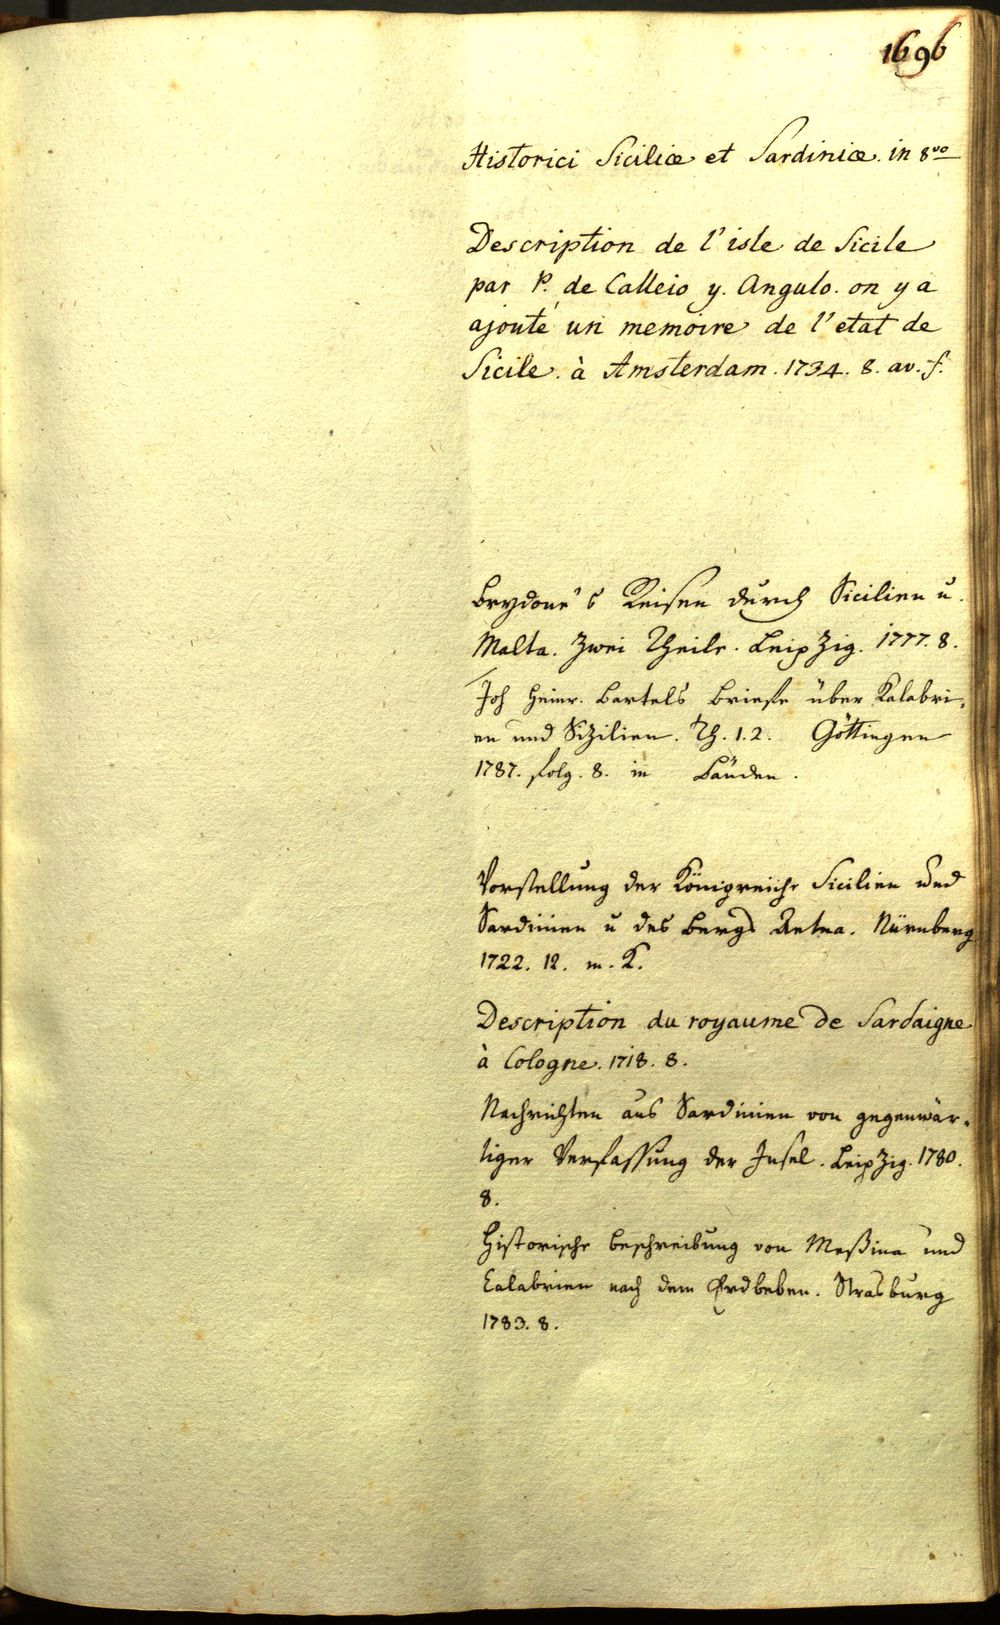 1696
Historici Siciliæ et Sardiniæ. in 8vo
Description de l'isle de Sicile
par P. de Calleio y. Angulo. on y a
ajouté un memoire de l'etat de
Sicile. à Amsterdam. 1734. 8. av. f.
Brydone's Reisen durch Sicilien u.
Malta. Zwei Theile. Leipzig. 1777. 8.
Joh Heinr. Bartels Briefe über Kalabri-
en und Sizilien. Th. 1. 2. Göttingen
1787. folg. 8. in Bänden.
Vorstellung der Königreiche Sicilien und
Sardinien u des Bergs Aetna. Nürnberg
1722. 12. m. K.
Description du royaume de Sardaigne
à Cologne. 1718. 8.
Nachrichten aus Sardinien von gegenwär-
tiger Verfassung der Insel. Leipzig. 1780.
8.
Historische Beschreibung von Meßina und
Calabrien nach dem Erdbeben. Strasburg
1783. 8.